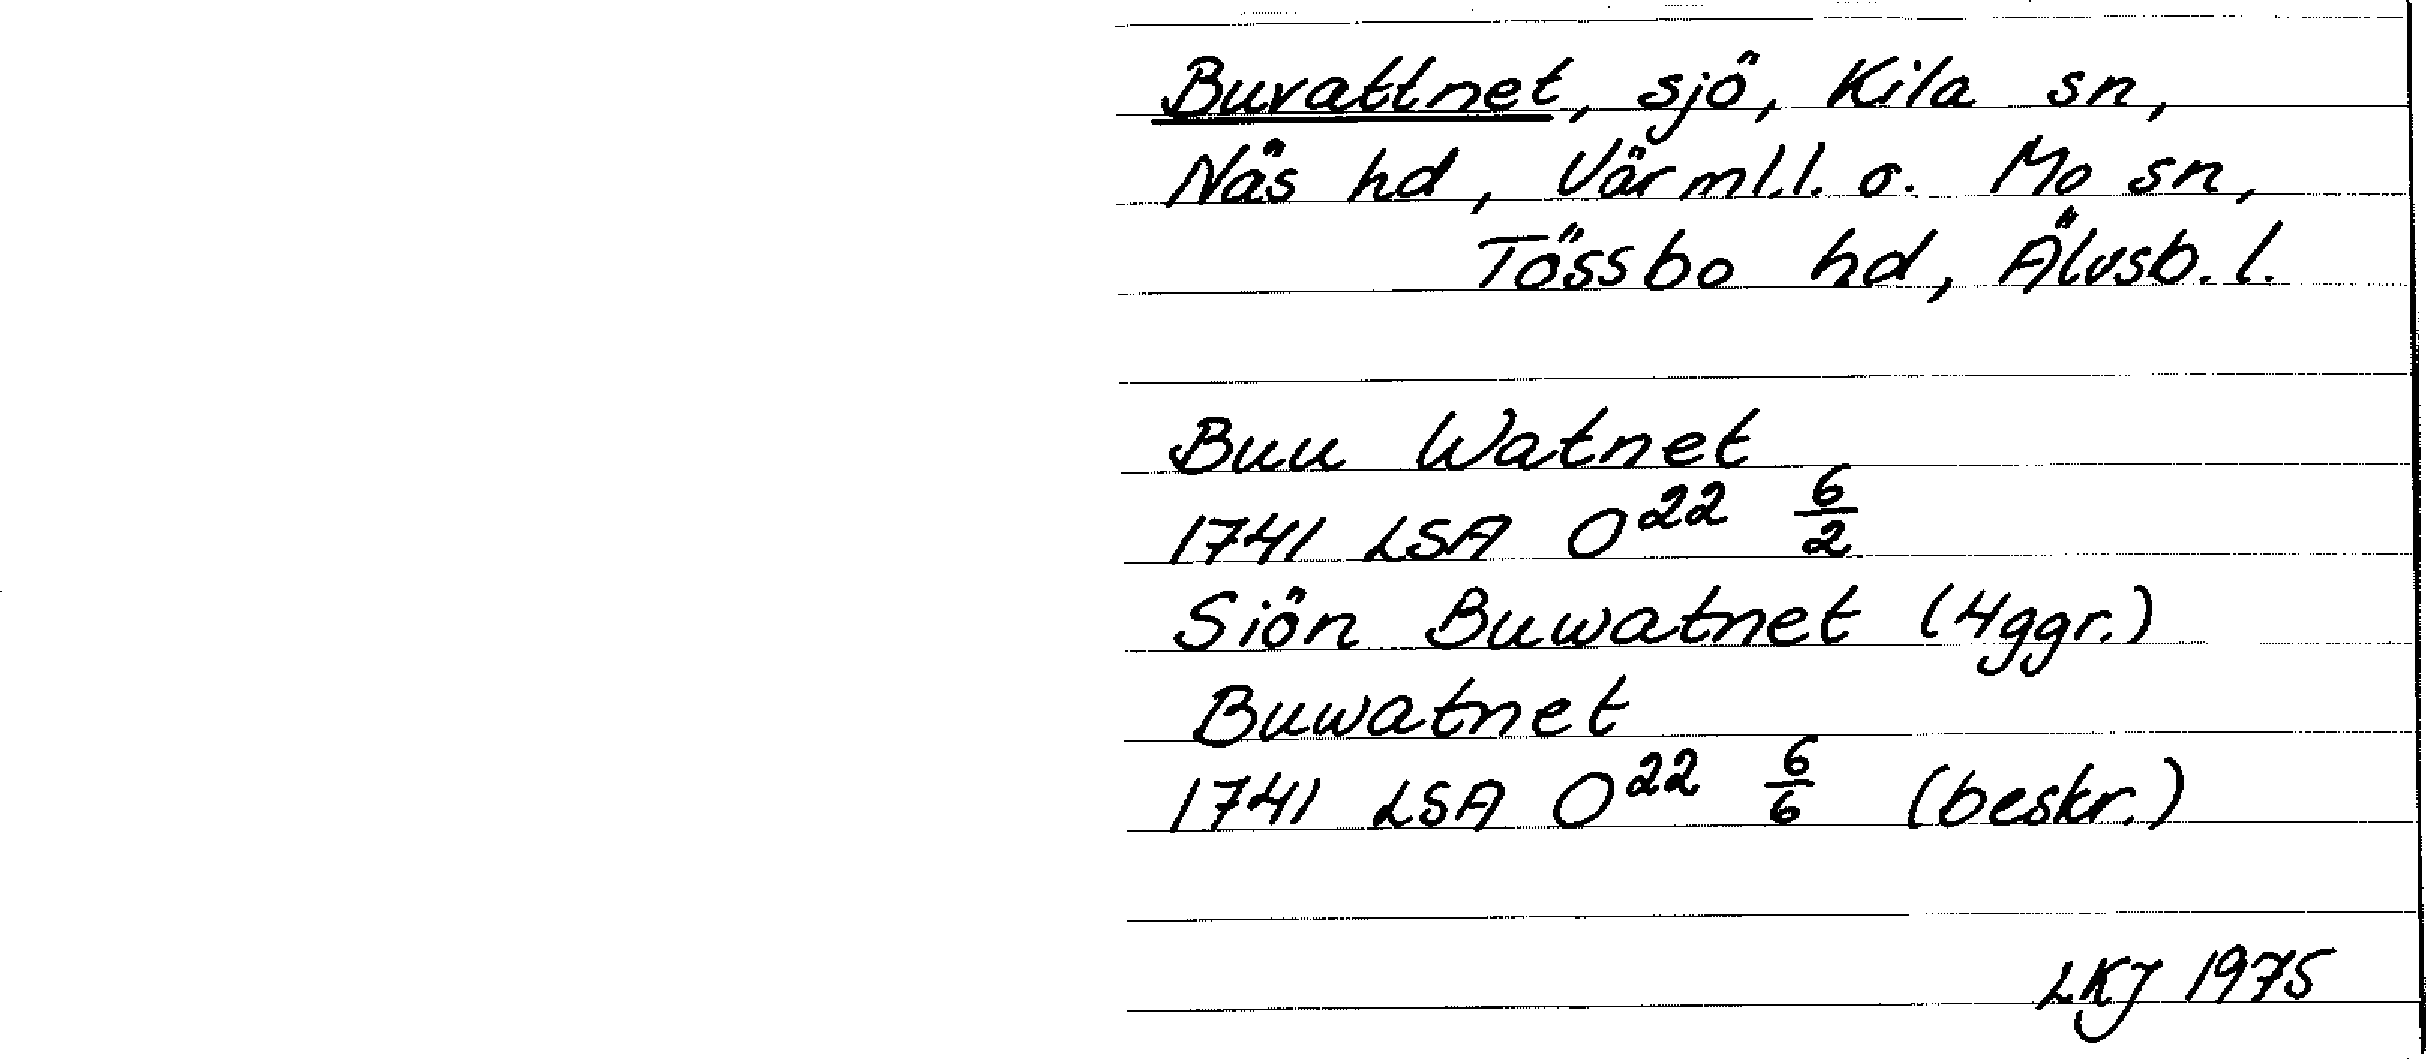 Buvattnet, sjö, Kila sn,
Näs hd, Värml.l. o. Mo sn,
Tössbo hd, Älvsb. l.
Buu Watnet
1741 LSA O²² 6/2
Siön Buwatnet (4ggr.)
Buwatnet
1741 LSA O²² 6/6 (beskr.)
LKJ 1975